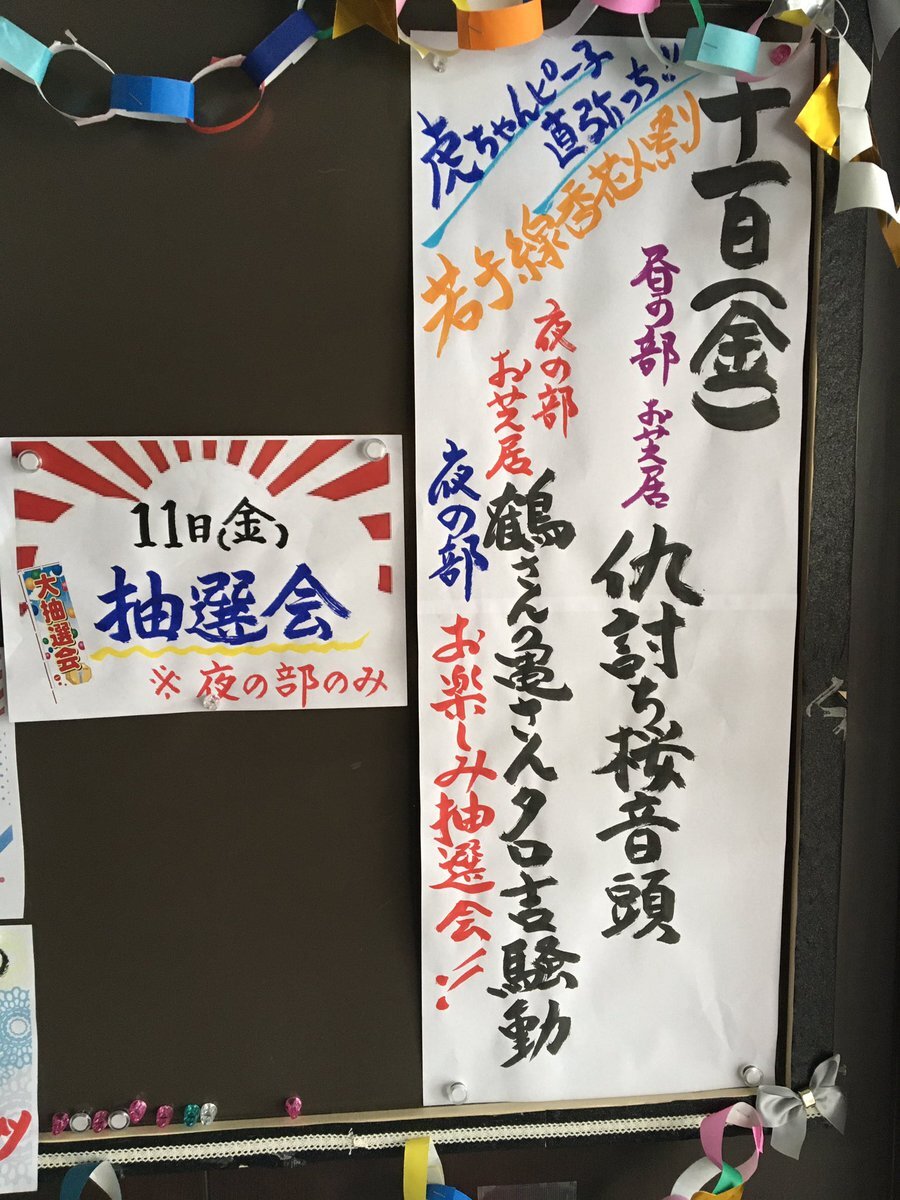 十一日(金)
昼の部 お芝居
仇討ち桜音頭
夜の部
お芝居
鶴さん亀さんタロ吉騒動
夜の部 お楽しみ抽選会!!
虎ちゃんピー子
直弥っち!!
若干線香花火祭り
11日(金)
抽選会
※夜の部のみ
大抽選会